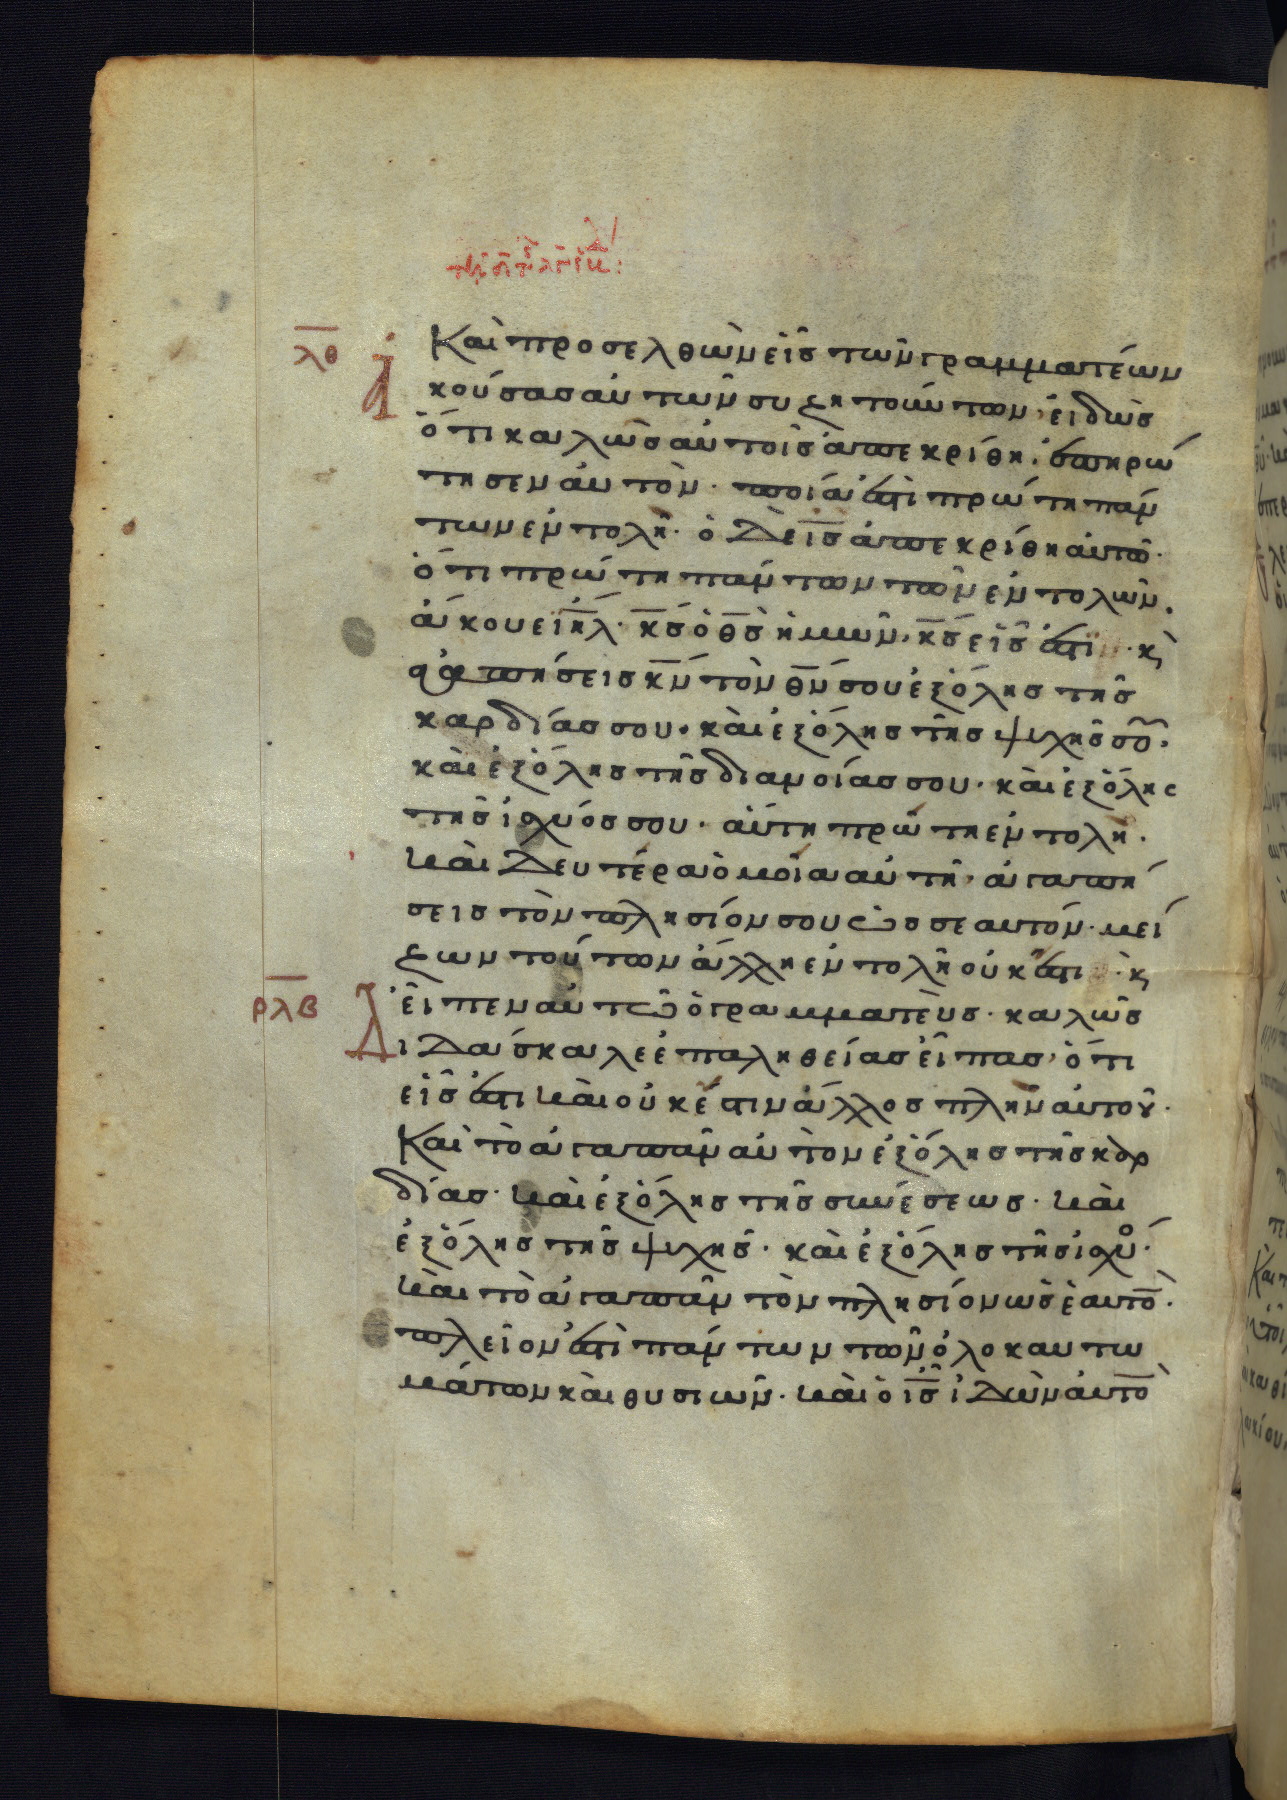 λθ
Καὶ προσελθὼν εἷς τῶν γραμματέων
ἀκούσας αὐτῶν συζητούντων, εἰδὼς
ὅτι καλῶς αὐτοῖς ἀπεκρίθη, ἐπηρώ
τησεν αὐτόν· ποία ἐστὶ πρώτη πάν
των ἐντολή· ὁ δὲ ι̅ς̅ ἀπεκρίθη αὐτῶ·
ὅτι πρώτη πάντων τῶν ἐντολῶν.
ἄκουε ι̅η̅λ̅· κ̅ς̅ ὁ θ̅ς̅ ἡμῶν, κ̅ς̅ εἷς ἐστι· κ̀
ἀγαπήσεις κ̅ν̅ τὸν θ̅ν̅ σου ἐξ ὅλης τῆς
καρδίας σου· καὶ ἐξ ὅλης τῆς ψυχῆς σου·
καὶ ἐξ ὅλης τῆς διανοίας σου· καὶ ἐξ ὅλης
τῆς ἰσχύος σου· αὕτη πρώτη ἐντολή.
καὶ δευτέρα ὁμοία αὐτῆ· ἀγαπή
σεις τὸν πλησίον σου ὡς σεαυτόν· μεί
ζων τούτων ἄλλη ἐντολὴ οὐκ ἔστι· κ̀
ρλβ
εἶπεν αὐτῶ ὁ γραμματεύς· καλῶς
Διδάσκαλε ἐπαληθείας εἶπας, ὅτι
εἷς ἐστι καὶ οὐκ ἔστιν ἄλλος πλὴν αὐτοῦ·
Καὶ τὸ ἀγαπᾶν αὐτὸν ἐξ ὅλης τῆς καρ
δίας· καὶ ἐξ ὅλης τῆς συνέσεως· καὶ
ἐξ ὅλης τῆς ψυχῆς· καὶ ἐξ ὅλης τῆς ἰσχύο·
καὶ τὸ ἀγαπᾶν τὸν πλησίον ὡς ἑαυτὸ·
πλεῖον ἐστὶ πάντων τῶν ὁλοκαυτω
μάτων καὶ θυσιῶν· καὶ ὁ ι̅ς̅ ἰδὼν αὐτὸ